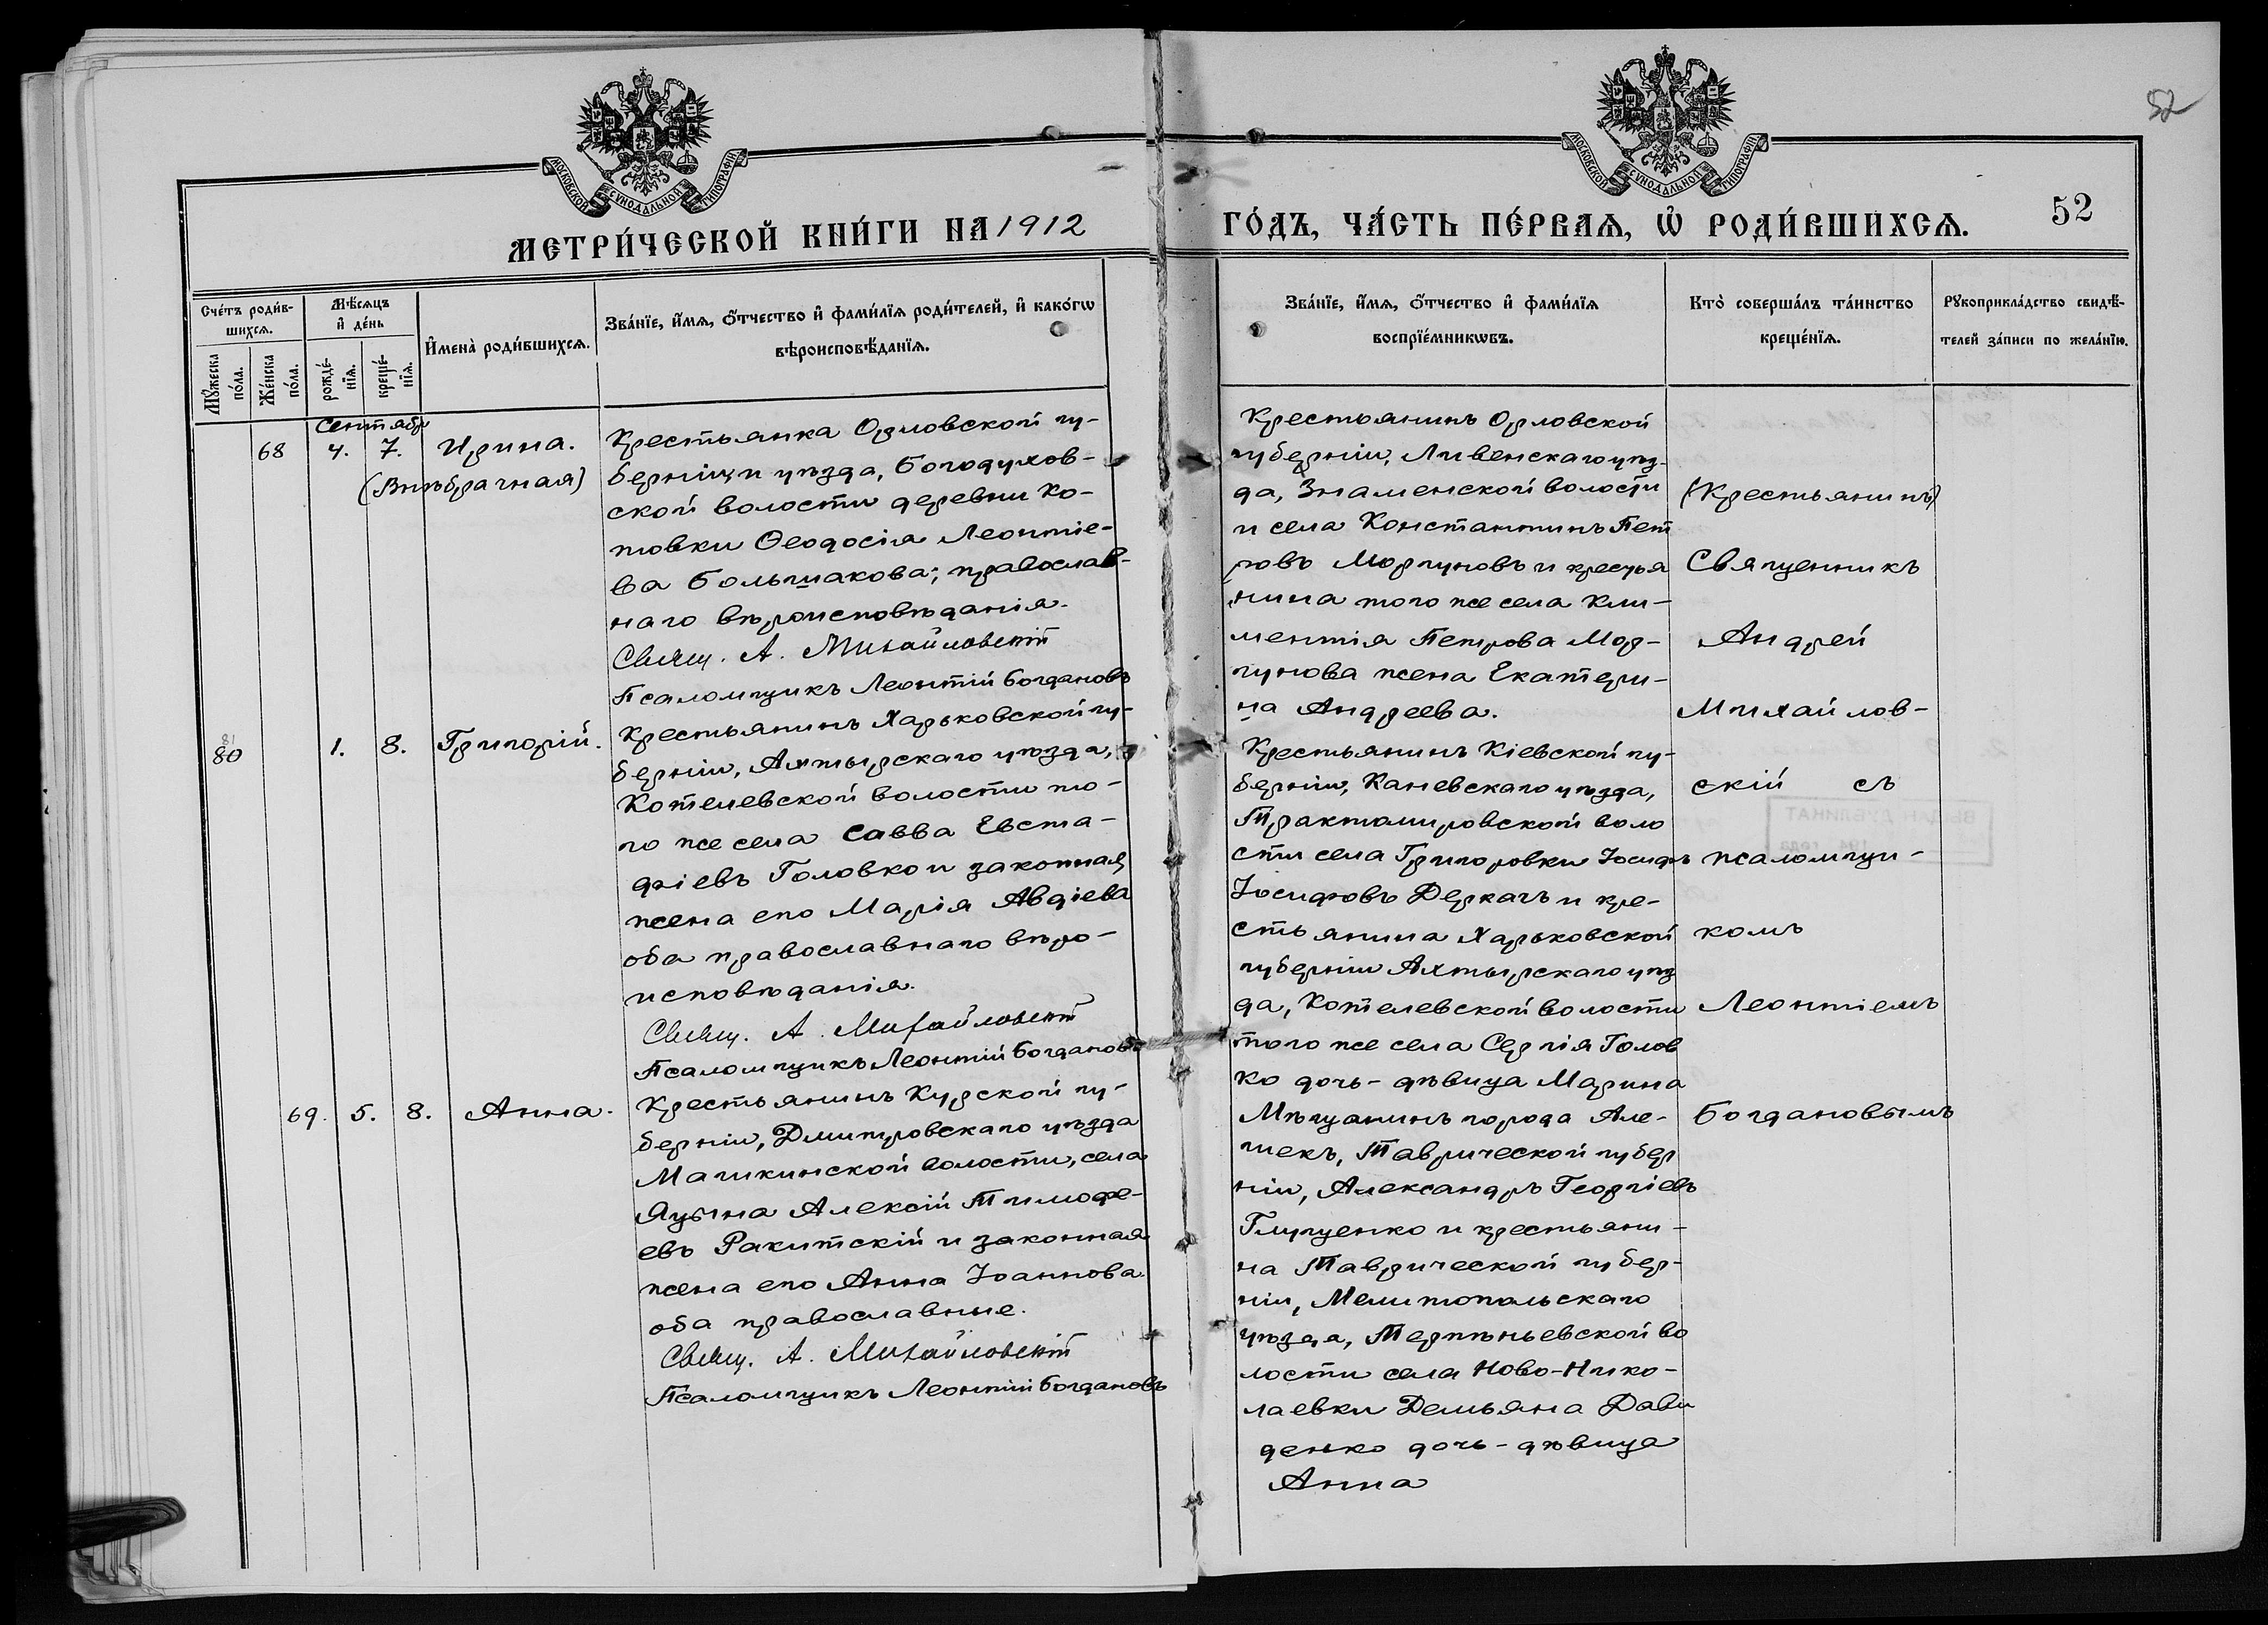 52
МОСКОВСКОЙ СѴНОДАЛЬНОЙ ТИПОГРАФІИ
МОСКОВСКОЙ СѴНОДАЛЬНОЙ ТИПОГРАФІИ
МЕТРИ́ЧЕСКОЙ КНИ́ГИ НА 1912
ГО́ДЪ, ЧА́СТЬ ПЕ́РВАѦ, Ѽ РОДИ́ВШИХСѦ.
52
Сче́тъ роди́в-
шихсѧ.
Мꙋ́жеска по́ла.
Же́нска по́ла.
Мѣ́сѧцъ
и҆ де́нь
рожде́-
нїѧ.
креще́-
нїѧ.
И҆мена̀ роди́вшихсѧ.
Зва́нїе, и҆́мѧ, ѻ҆́тчество и҆ фами́лїѧ роди́телей, и҆ како́гѡ
вѣроисповѣ́данїѧ.
Зва́нїе, и҆́мѧ, ѻ҆́тчество и҆ фами́лїѧ
воспрїе́мникѡвъ.
Кто̀ соверша́лъ та́инство
креще́нїѧ.
Рꙋкоприкла́дство свидѣ́-
телей за́писи по жела́нїю.
Сентябр
68
4.
7.
Ирина.
(Внѣбрачная)
Крестьянка Орловской гу-
берніи и уѣзда, Богодухов-
ской волости деревни Ко-
товки Ѳеодосія Леонтіе-
ва Большакова; православ-
наго вѣроисповѣданія.
Свящ. А. Михайловскій
Псаломщикъ Леонтій Богдановъ
Крестьянинъ Орловской
губерніи, Ливенскаго уѣз-
да, Знаменской волости
и села Константинъ Пет
ровъ Моргуновъ и крестья
нина того же села Кли-
ментія Петрова Мор-
гунова жена Екатери-
на Андреева.
(Крестьянинъ)
Священникъ
Андрей
Михайлов-
скій съ
псаломщи-
комъ
Леонтіемъ
Богдановымъ
81
80
1.
8.
Григорій.
Крестьянинъ Харьковской гу-
берніи, Ахтырскаго уѣзда,
Котелевской волости то-
го же села Савва Евста-
фіевъ Головко и законная
жена его Марія Авдіева
оба православнаго вѣро-
исповѣданія.
Свящ. А. Михайловскій
Псаломщикъ Леонтій Богдановъ
Крестьянинъ Кіевской гу-
берніи, Каневскаго уѣзда,
Трактомировской воло
сти села Григоровки Іосифъ
Іосифовъ Деркачъ и кре-
стьянина Харьковской
губерніи Ахтырскаго уѣз
да, Котелевской волости
того же села Сергія Голов
ко дочь-дѣвица Марина
ВЫДАН ДУБЛИКАТ
69.
5.
8.
Анна.
Крестьянинъ Курской гу-
берніи, Дмитровскаго уѣзда
Машкинской волости, села
Яцына Алексій Тимофе-
евъ Ракитскій и законная
жена его Анна Іоаннова.
оба православные.
Свящ. А. Михайловскій
Псаломщикъ Леонтій Богдановъ
Мѣщанинъ города Але-
шекъ, Таврической губер
ніи, Александръ Георгіевъ
Глущенко и крестьяни-
на Таврической губер-
ніи, Мелитопольскаго
уѣзда, Терпѣньевской во
лости села Ново-Нико-
лаевки Демьяна Дави
денко дочь-дѣвица
Анна